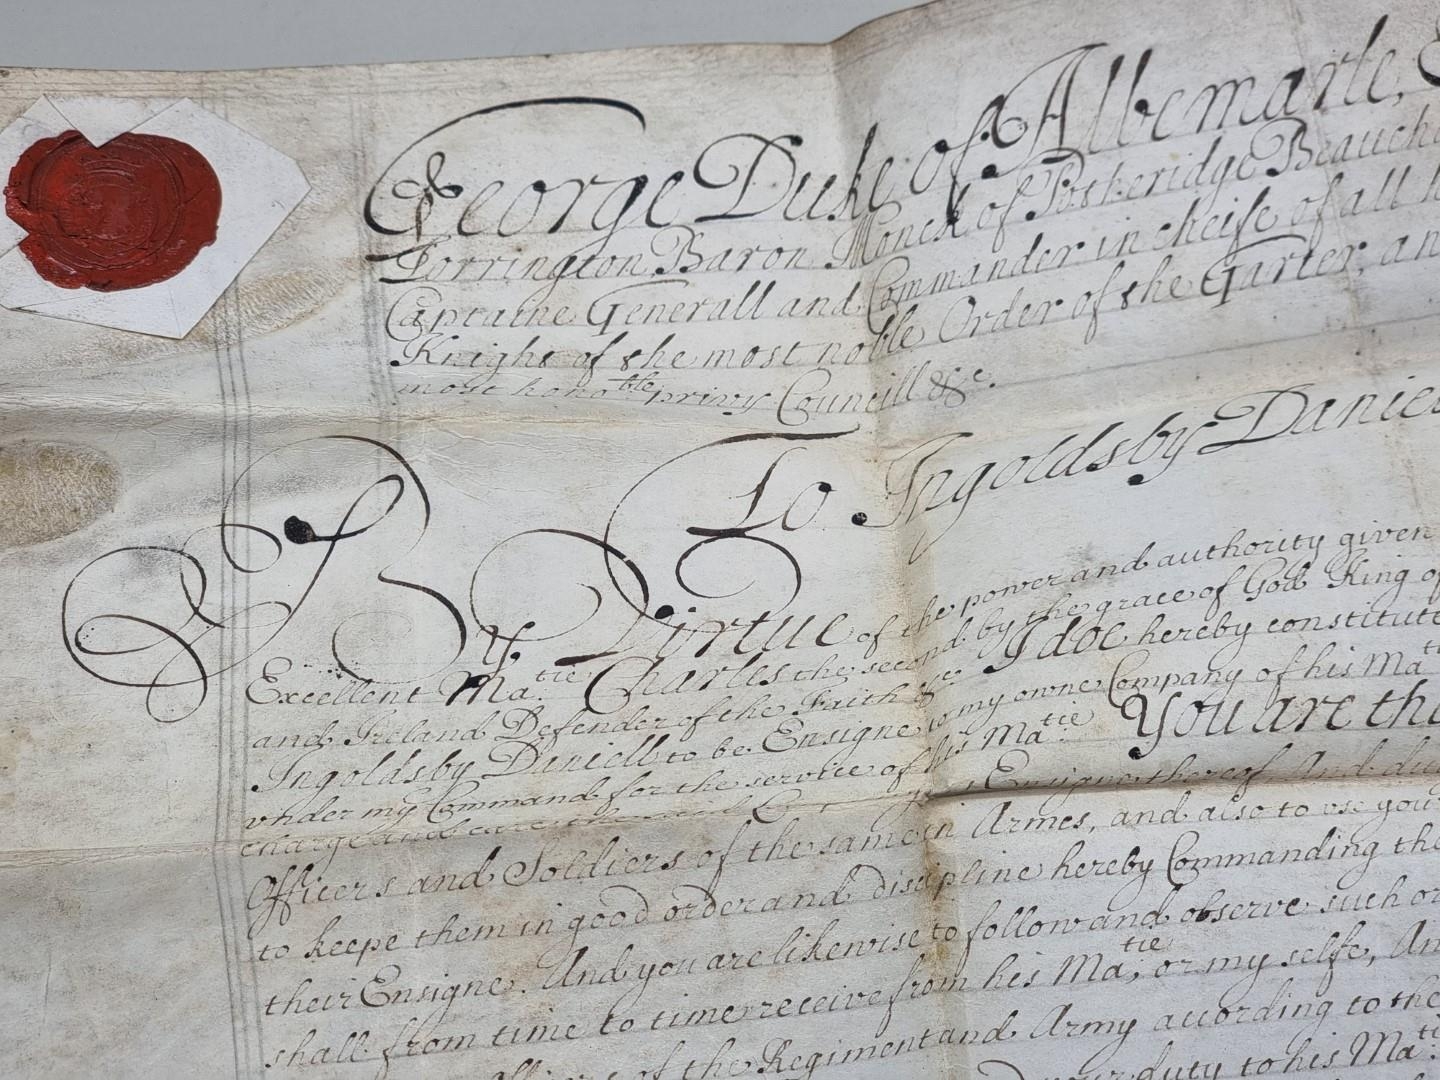 George Duke of Albemarle, E
Torrington Baron Monck of Potheridge Beauch
Captaine Generall and Commander in cheife of all h
Knight of the most noble Order of the Garter, an
most hono:ble privy Councill &c.
To Ingoldsby Daniel
By Virtue of the power and authority given
Excellent Ma:tie Charles the second by the grace of God King of
and Ireland Defender of the Faith &c. I doe hereby constitute
Ingoldsby Daniell to be Ensigne to my owne Company of his Ma:ti
under my Command for the service of his Ma:tie You are the
charge and care Ensigne thereof And du
Officers and Soldiers of the same in Armes, and also to use your
to keepe them in good order and discipline hereby Commanding the
their Ensigne. And you are likewise to follow and observe such or
shall from time to time receive from his Ma:tie or my selfe, An
of the Regiment and Army according to the
your duty to his Ma:ti